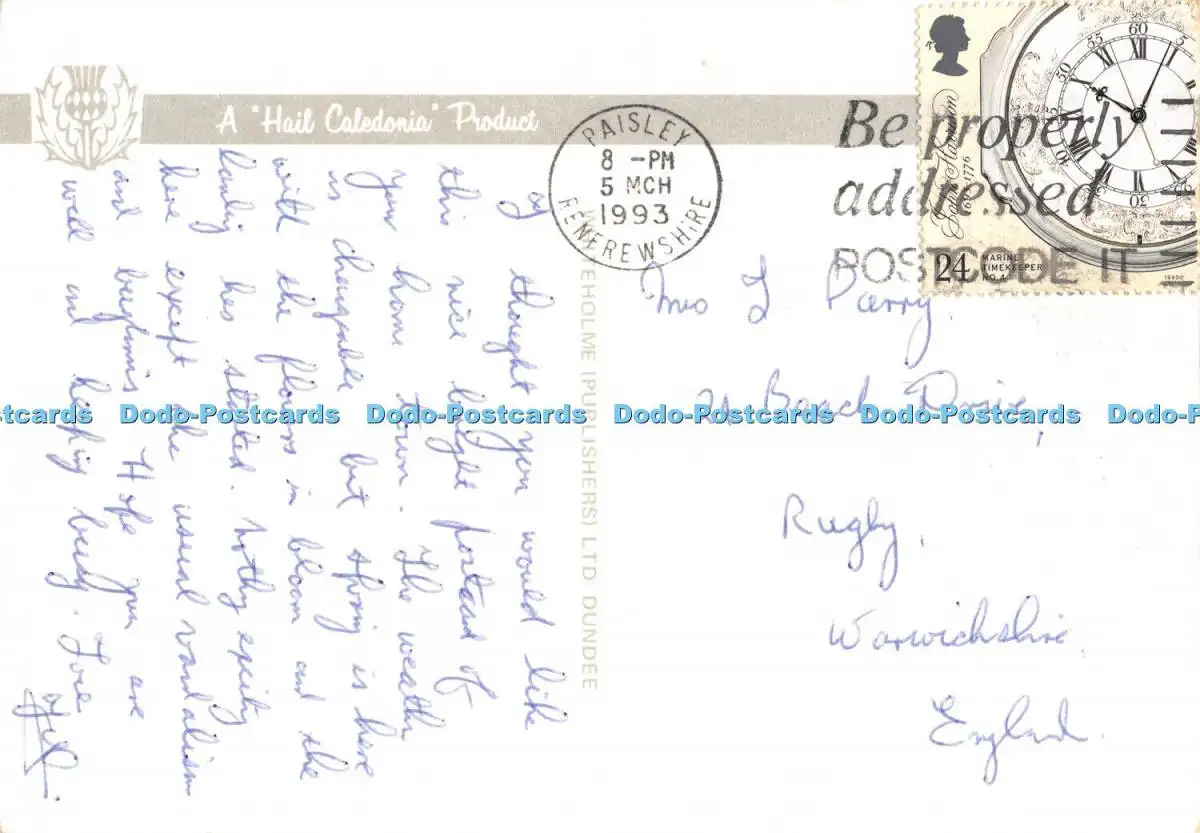 A "Hail Caledonia" Product
PAISLEY
8 -PM
5 MCH
1993
RENFREWSHIRE
Be properly
addressed
POSTCODE IT
John Harrison
1693-1776
24
MARINE
TIMEKEEPER
NO.4
60
5
55
50
I thought you would like
this nice bright postcard of
your home town. The weather
is changable but spring is here
with the flowers in bloom and the
has started. Nothg exciting
here except the usual vandalism
and Hope you are
well and keeping busy. Love
WHITEHOLME (PUBLISHERS) LTD DUNDEE
Mrs I Parry
Drive,
Rugby,
Warwickshire,
England.
Dodo-Postcards Dodo-Postcards Dodo-Postcards Dodo-Postcards